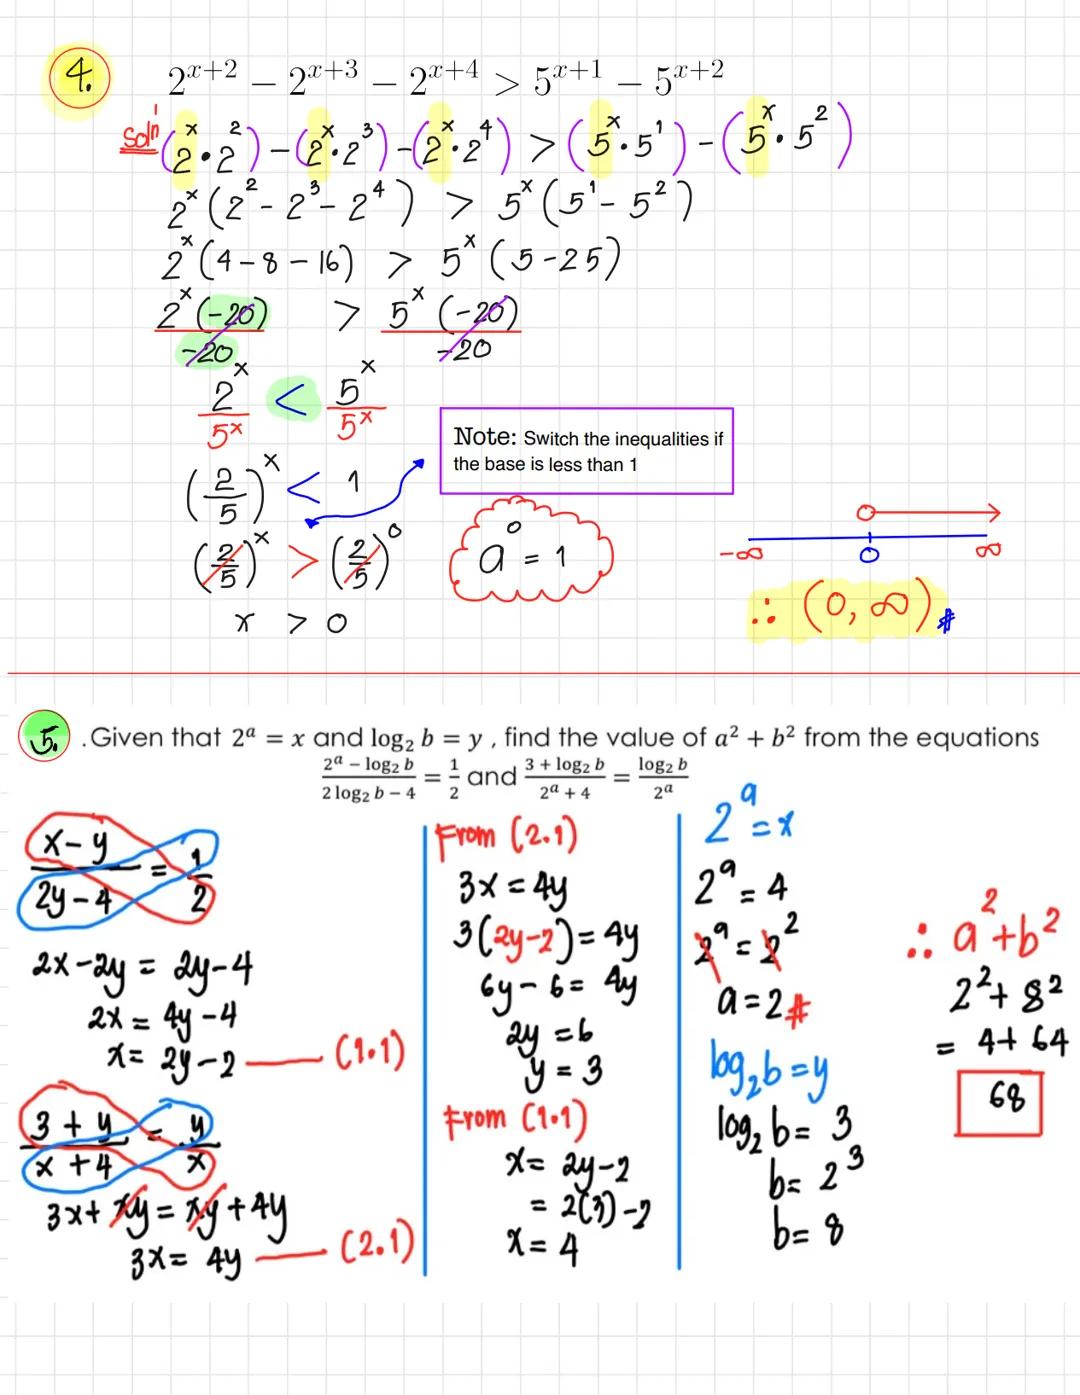 4. 2^{x+2} − 2^{x+3} − 2^{x+4} > 5^{x+1} − 5^{x+2}
Sol'n (2^x · 2^2) − (2^x · 2^3) − (2^x · 2^4) > (5^x · 5^1) − (5^x · 5^2)
2^x (2^2 − 2^3 − 2^4) > 5^x (5^1 − 5^2)
2^x (4 − 8 − 16) > 5^x (5 − 25)
2^x (−20) / −20 > 5^x (−20) / −20
2^x / 5^x < 5^x / 5^x
Note: Switch the inequalities if
the base is less than 1
(2/5)^x < 1
(2/5)^x > (2/5)^0
a^0 = 1
x > 0
−∞ 0 ∞
∴ (0, ∞) #
5. .Given that 2^a = x and log_2 b = y , find the value of a^2 + b^2 from the equations
(2^a − log_2 b)/(2 log_2 b − 4) = 1/2 and (3 + log_2 b)/(2^a + 4) = (log_2 b)/(2^a)
(x − y)/(2y − 4) = 1/2
2x − 2y = 2y − 4
2x = 4y − 4
x = 2y − 2 (1.1)
(3 + y)/(x + 4) = y/x
3x + xy = xy + 4y
3x = 4y (2.1)
From (2.1)
3x = 4y
3(2y−2) = 4y
6y − 6 = 4y
2y = 6
y = 3
From (1.1)
x = 2y − 2
= 2(3) − 2
x = 4
2^a = x
2^a = 4
2^a = 2^2
a = 2 #
log_2 b = y
log_2 b = 3
b = 2^3
b = 8
∴ a^2 + b^2
2^2 + 8^2
= 4 + 64
68